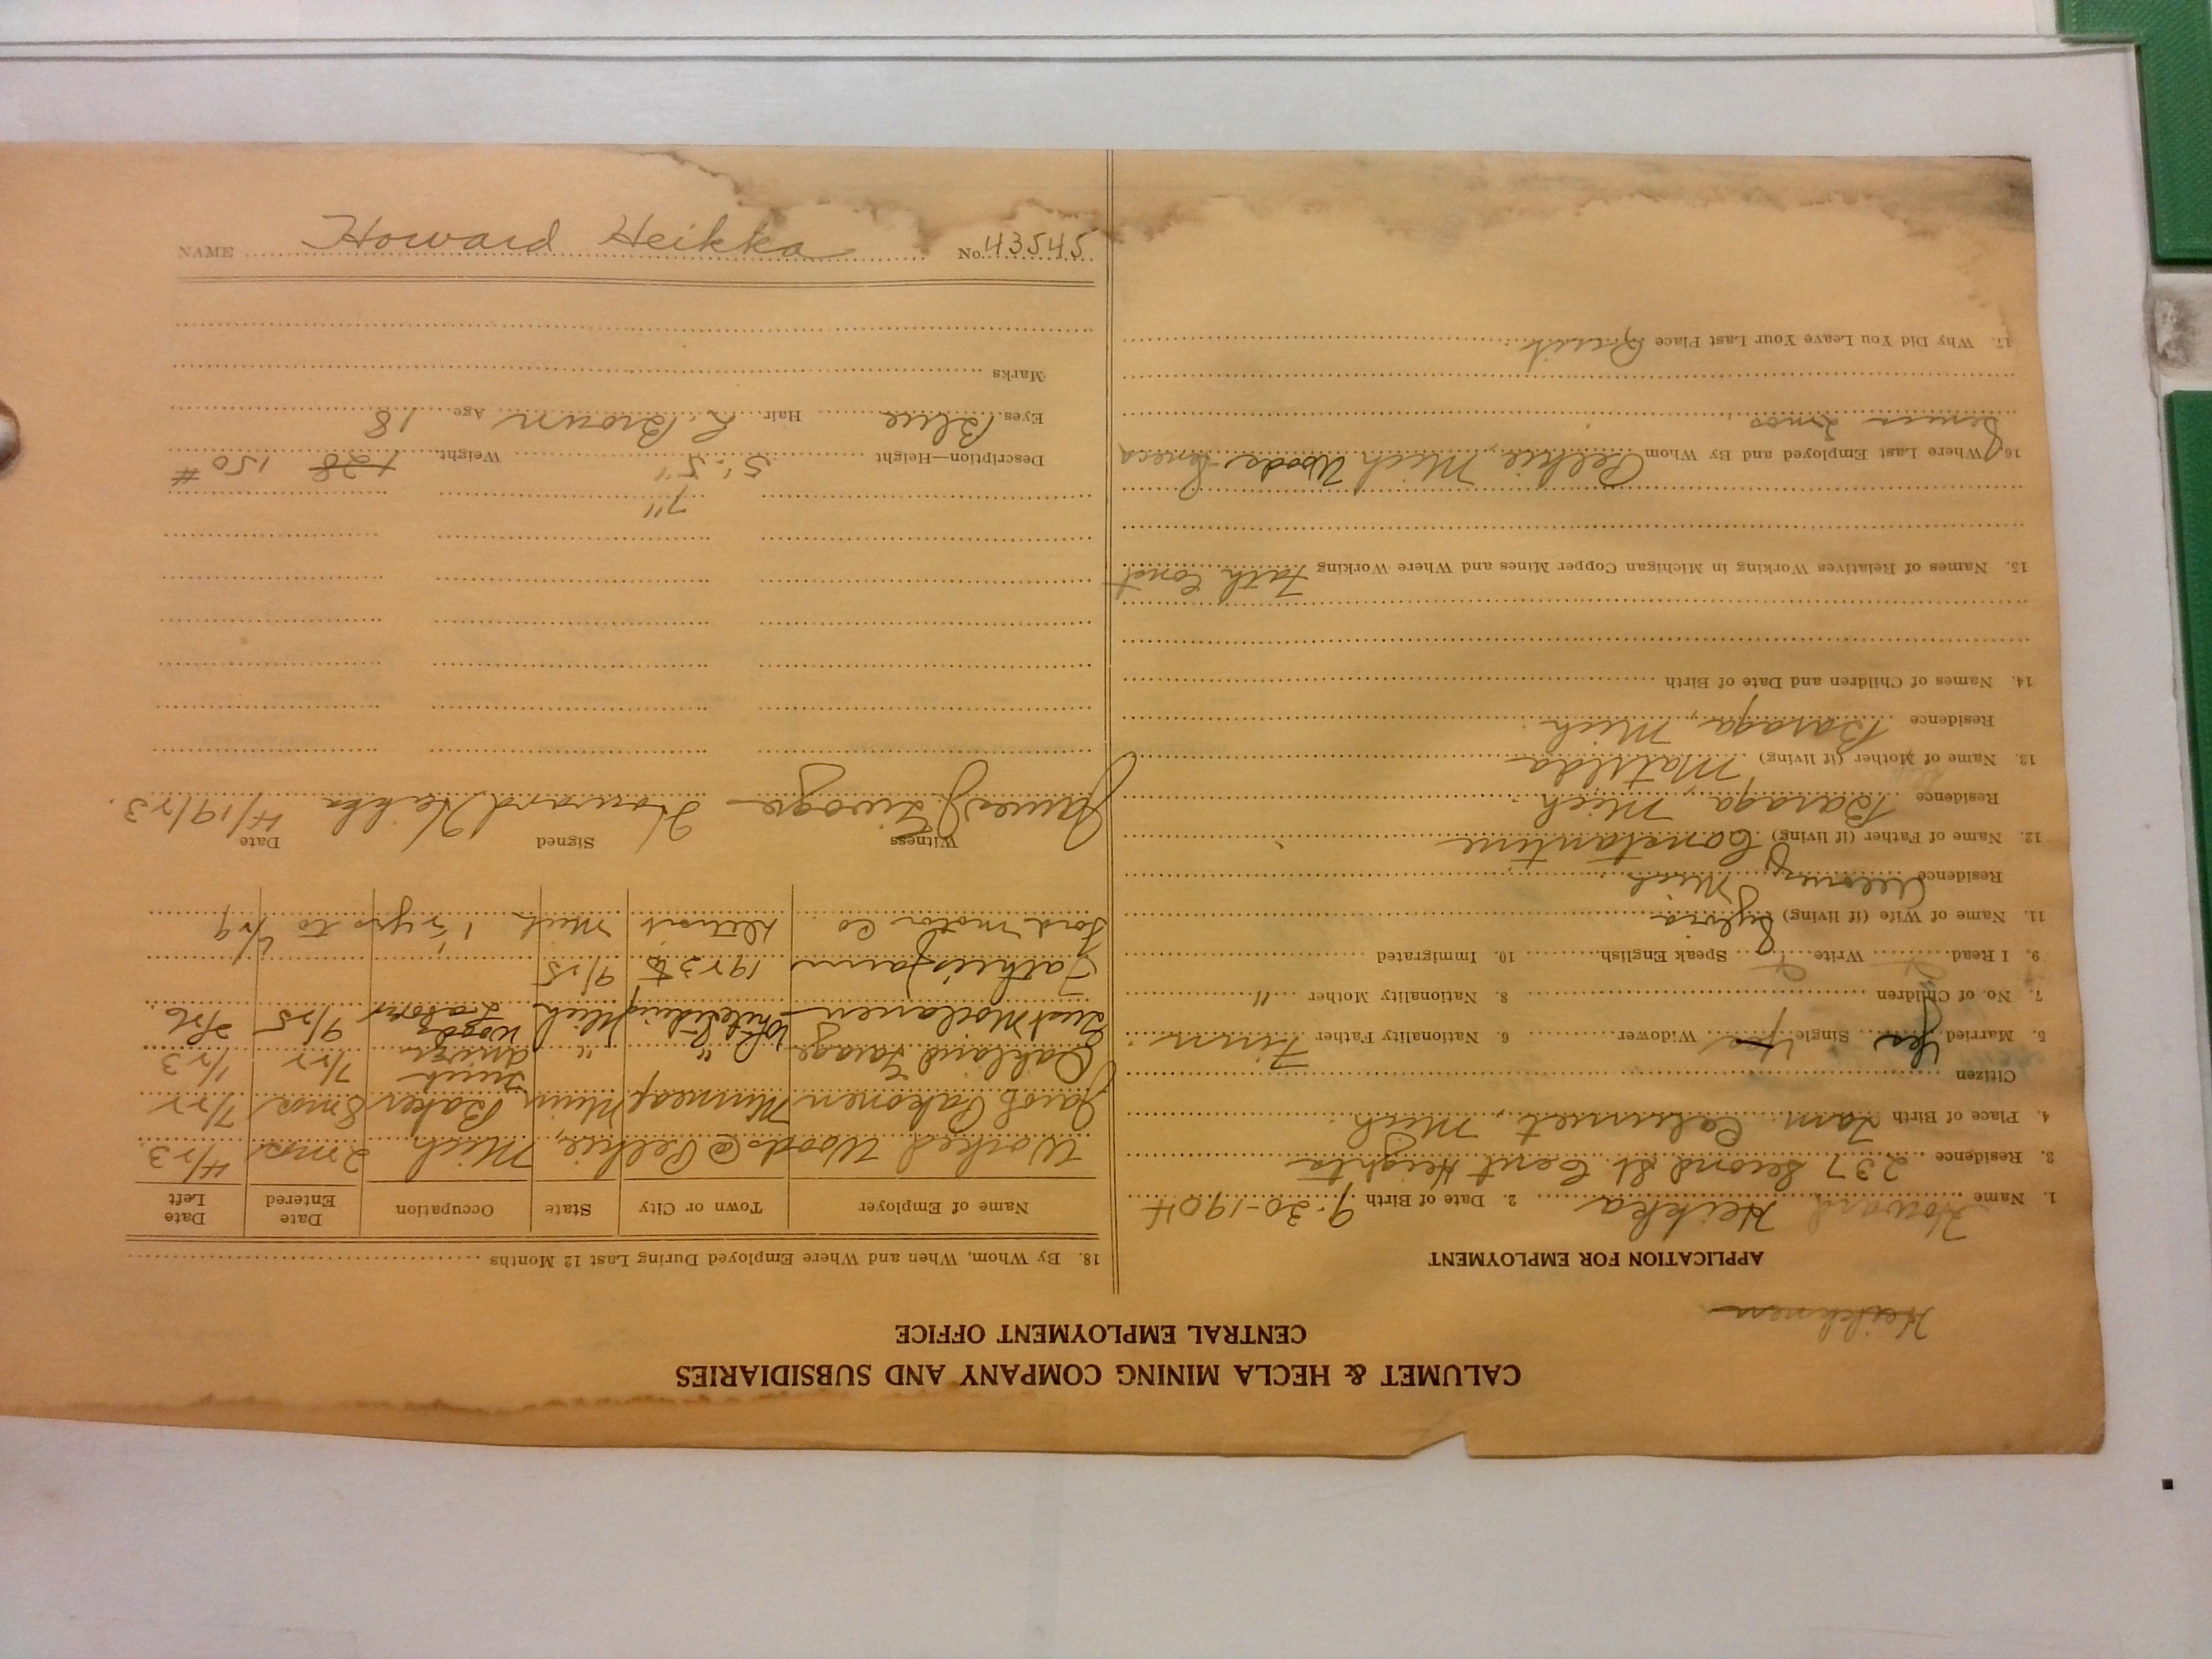 CALUMET & HECLA MINING COMPANY AND SUBSIDIARIES
CENTRAL EMPLOYMENT OFFICE
Heikkinen
APPLICATION FOR EMPLOYMENT
1. Name Howard Heikka 2. Date of Birth 9-30-1904
3. Residence 237 Second St. Cent Heights
4. Place of Birth Tam. Calumet, Mich.
Citizen
5. Married Yes Single Yes Widower 6. Nationality Father Finn
7. No. of Children 8. Nationality Mother "
9. I Read Write Speak English 10. Immigrated
11. Name of Wife (if living) Sylvia
Residence Allouez Mich
12. Name of Father (if living) Constantine
Residence Baraga, Mich
13. Name of Mother (if living) Matilda
Residence Baraga, Mich.
14. Names of Children and Date of Birth
15. Names of Relatives Working in Michigan Copper Mines and Where Working Fath Const
16. Where Last Employed and By Whom Pelkie, Mich Woods Seneca
Seneca 2 mos
17. Why Did You Leave Your Last Place Quit
18. By Whom, When and Where Employed During Last 12 Months
Name of Employer Town or City State Occupation Date Entered Date Left
Worked Woods @ Pelkie, Mich. 2 mos 4/23.
Jacob Pakonen Minneap Minn Baker 8 mos 7/22
Oakland Garage " " Truck driver 7/22 1/23
Moilanen Mich Woods Labor 9/25 2/26.
Fathers farm 1923 to 9/25
Ford Motor Co Detroit Mich 1 1/2 yrs to 6/29
Witness Signed Date
James J. Howard Heikka 4/19/23.
7"
Description—Height 5'. 5" Weight 128 150 #
Eyes Blue Hair L. Brown Age 18
Marks
NAME Howard Heikka No. 43545